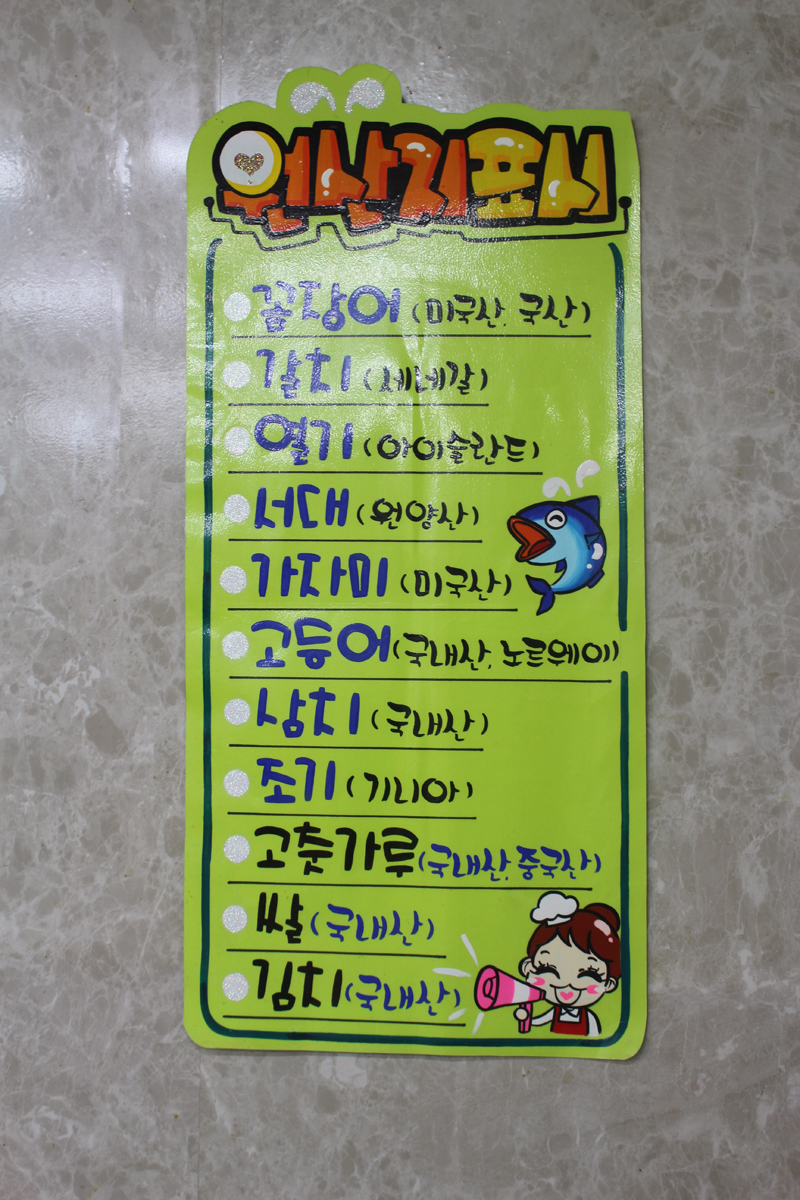 원산지표시
꼼장어 (미국산, 국산)
갈치 (세네갈)
열기 (아이슬란드)
서대 (원양산)
가자미 (미국산)
고등어 (국내산, 노르웨이)
삼치 (국내산)
조기 (기니아)
고춧가루 (국내산, 중국산)
쌀 (국내산)
김치 (국내산)